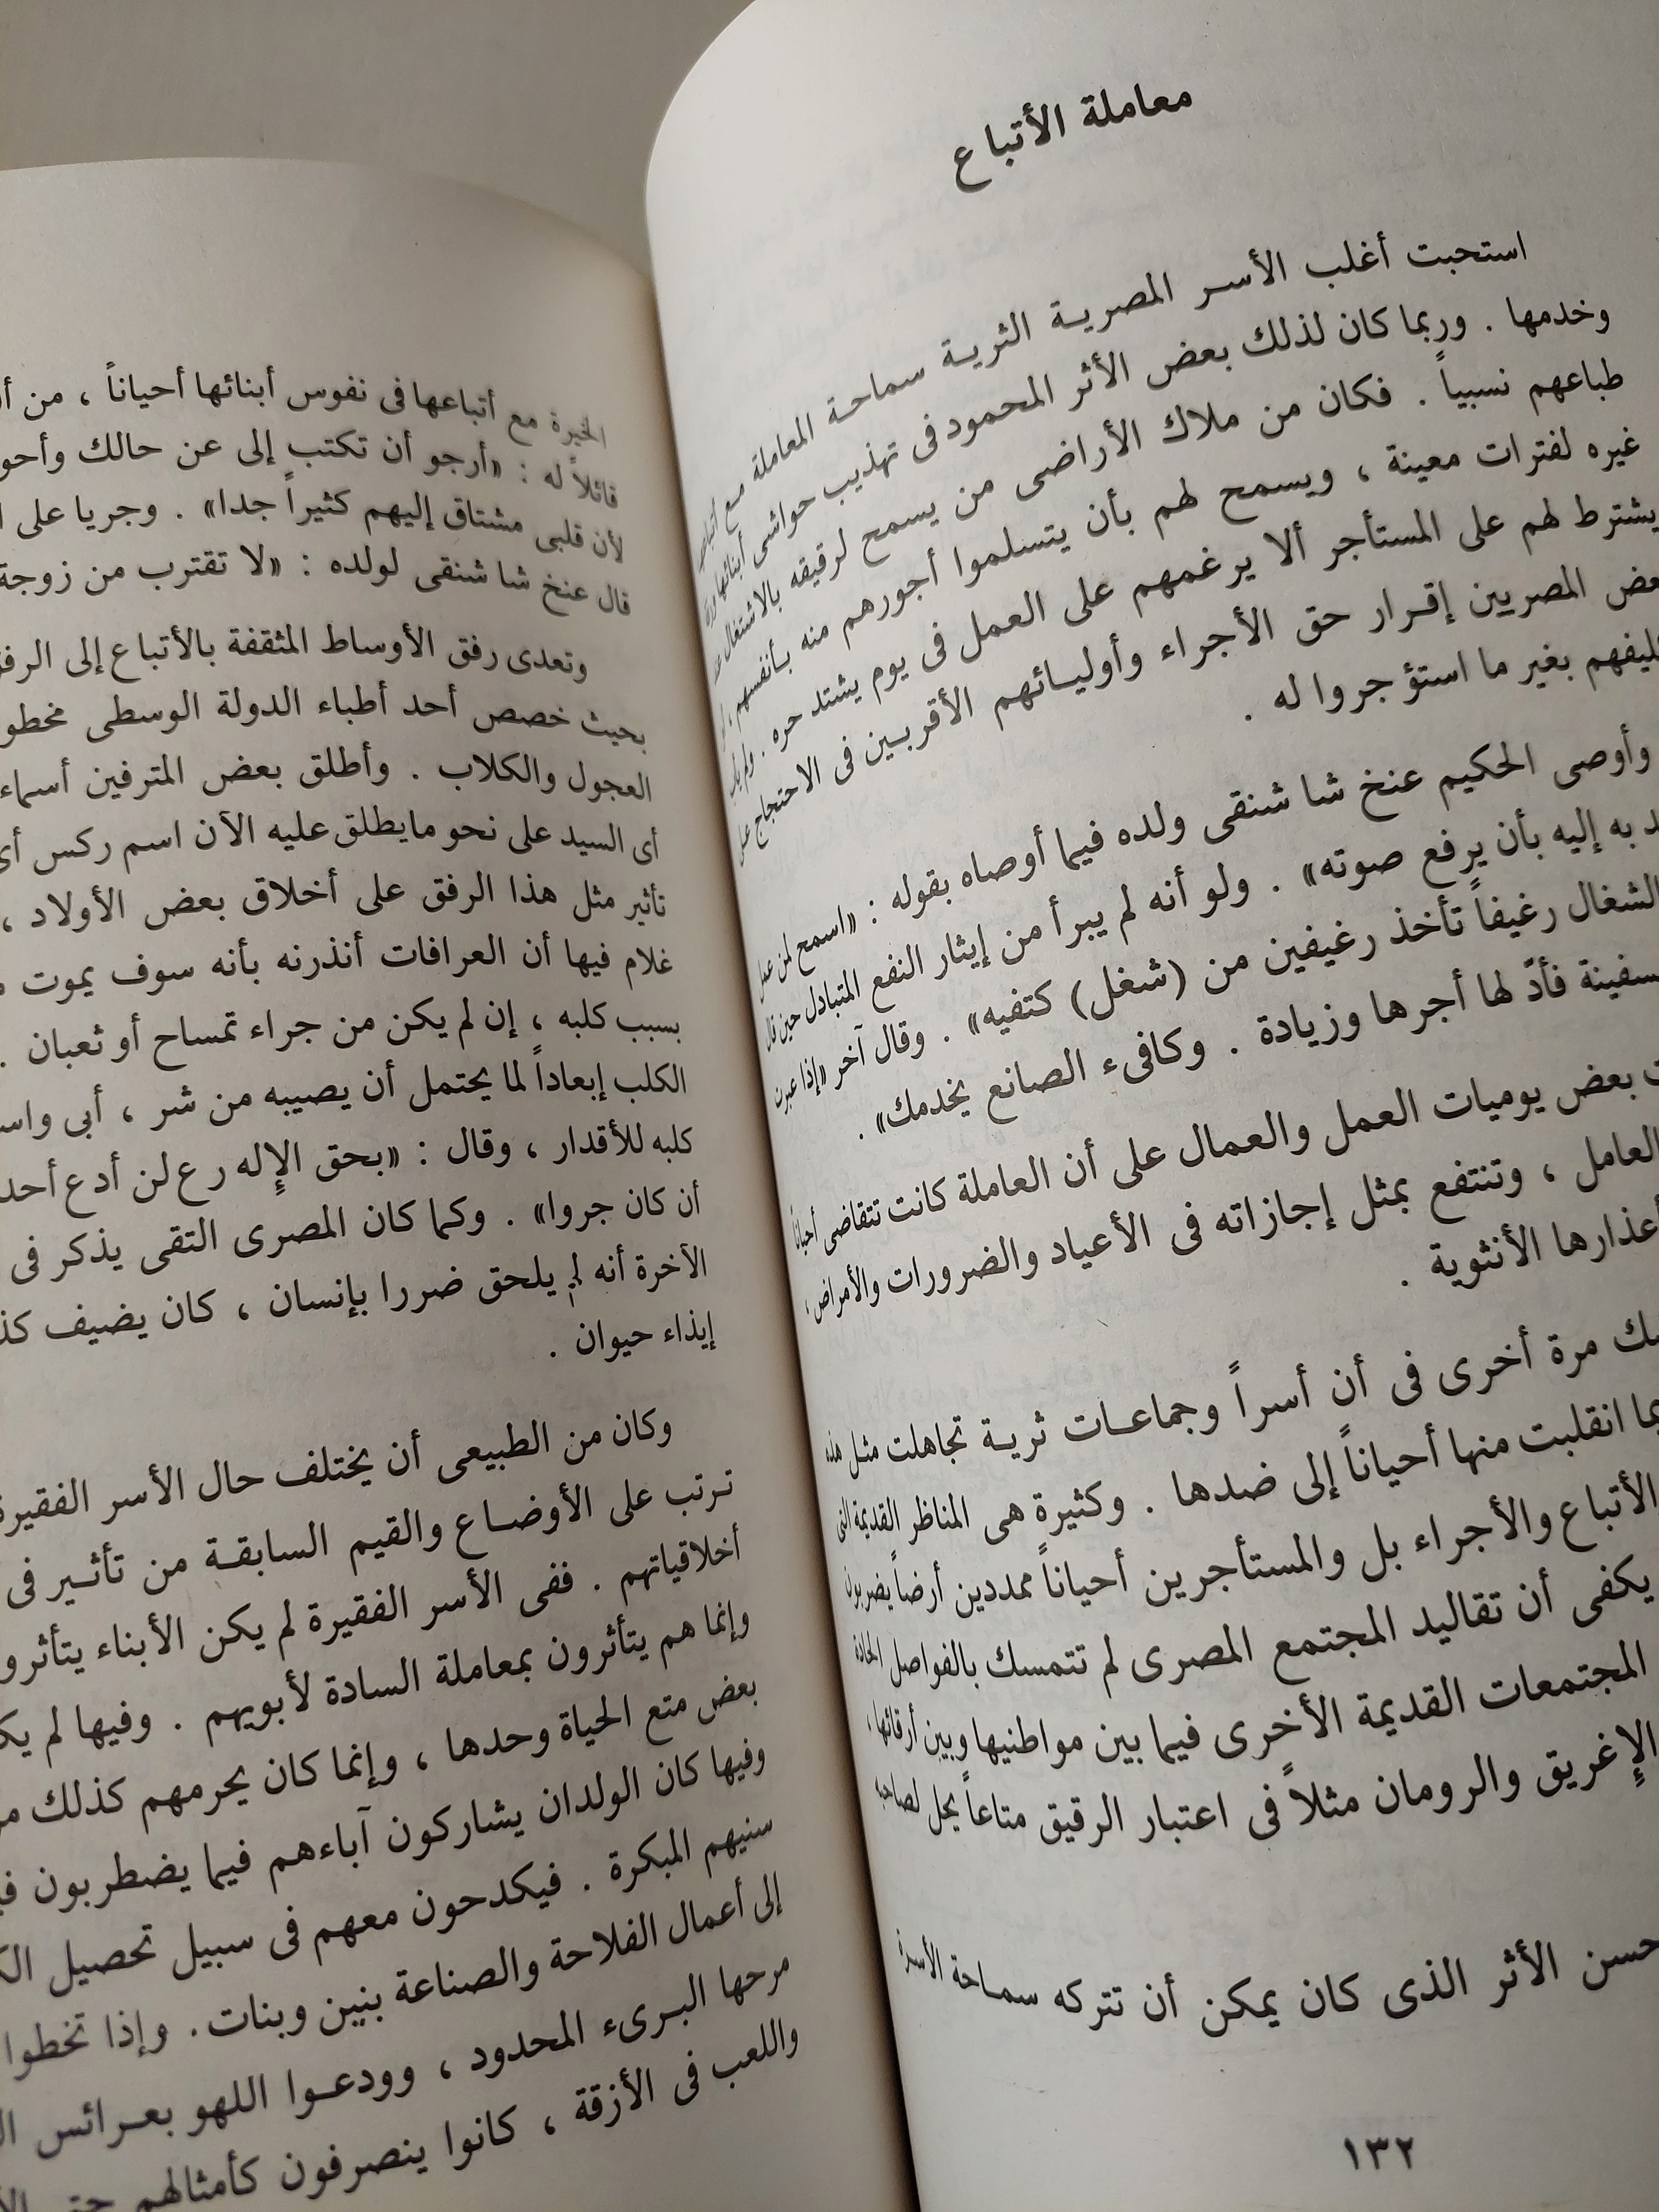 معاملة الأتباع
استحبت أغلب الأسر المصرية الثرية سماحة المعاملة مع
وخدمها . وربما كان لذلك بعض الأثر المحمود فى تهذيب حواشى أبنائها
طباعهم نسبياً . فكان من ملاك الأراضى من يسمح لرقيقه بالاشتغال
غيره لفترات معينة ، ويسمح لهم بأن يتسلموا أجورهم منه بأنفسهم ،
يشترط لهم على المستأجر ألا يرغمهم على العمل فى يوم يشتد حره .
المصريين إقرار حق الأجراء وأوليائهم الأقربين فى الاحتجاج
بغير ما استؤجروا له .
وأوصى الحكيم عنخ شا شنقى ولده فيما أوصاه بقوله : «اسمح لمن
به إليه بأن يرفع صوته» . ولو أنه لم يبرأ من إيثار النفع المتبادل حين قال
الشغال رغيفاً تأخذ رغيفين من (شغل) كتفيه» . وقال آخر «إذا عبرت
فأدِّ لها أجرها وزيادة . وكافىء الصانع يخدمك» .
بعض يوميات العمل والعمال على أن العاملة كانت تتقاضى أحياناً
العامل ، وتنتفع بمثل إجازاته فى الأعياد والضرورات والأمراض ،
أعذارها الأنثوية .
مرة أخرى فى أن أسراً وجماعات ثرية تجاهلت مثل هذه
انقلبت منها أحياناً إلى ضدها . وكثيرة هى المناظر القديمة التى
الأتباع والأجراء بل والمستأجرين أحياناً ممددين أرضاً يضربون
يكفى أن تقاليد المجتمع المصرى لم تتمسك بالفواصل الحادة
المجتمعات القديمة الأخرى فيما بين مواطنيها وبين أرقائها ،
الإغريق والرومان مثلاً فى اعتبار الرقيق متاعاً يحل لصاحبه
حسن الأثر الذى كان يمكن أن تتركه سماحة الأسرة
١٣٢
الخيرة مع أتباعها فى نفوس أبنائها أحياناً ، من
قائلاً له : «أرجو أن تكتب إلى عن حالك
لأن قلبى مشتاق إليهم كثيراً جدا» . وجريا على
قال عنخ شا شنقى لولده : «لا تقترب من زوجة
وتعدى رفق الأوساط المثقفة بالأتباع إلى
بحيث خصص أحد أطباء الدولة الوسطى
العجول والكلاب . وأطلق بعض المترفين أسماء
أى السيد على نحو مايطلق عليه الآن اسم ركس أى
تأثير مثل هذا الرفق على أخلاق بعض الأولاد ،
غلام فيها أن العرافات أنذرنه بأنه سوف يموت
بسبب كلبه ، إن لم يكن من جراء تمساح أو ثعبان .
الكلب إبعاداً لما يحتمل أن يصيبه من شر ، أبى
كلبه للأقدار ، وقال : «بحق الإله رع لن أدع
أن كان جروا» . وكما كان المصرى التقى يذكر فى
الآخرة أنه لم يلحق ضررا بإنسان ، كان يضيف
إيذاء حيوان .
وكان من الطبيعى أن يختلف حال الأسر الفقيرة
ترتب على الأوضاع والقيم السابقة من تأثير فى
أخلاقياتهم . ففى الأسر الفقيرة لم يكن الأبناء
وإنما هم يتأثرون بمعاملة السادة لأبويهم . وفيها لم
بعض متع الحياة وحدها ، وإنما كان يحرمهم كذلك
وفيها كان الولدان يشاركون آباءهم فيما يضطربون
سنيهم المبكرة . فيكدحون معهم فى سبيل تحصيل
إلى أعمال الفلاحة والصناعة بنين وبنات . وإذا تخطوا
مرحها البرىء المحدود ، وودعوا اللهو بعرائس
واللعب فى الأزقة ، كانوا ينصرفون كأمثالهم